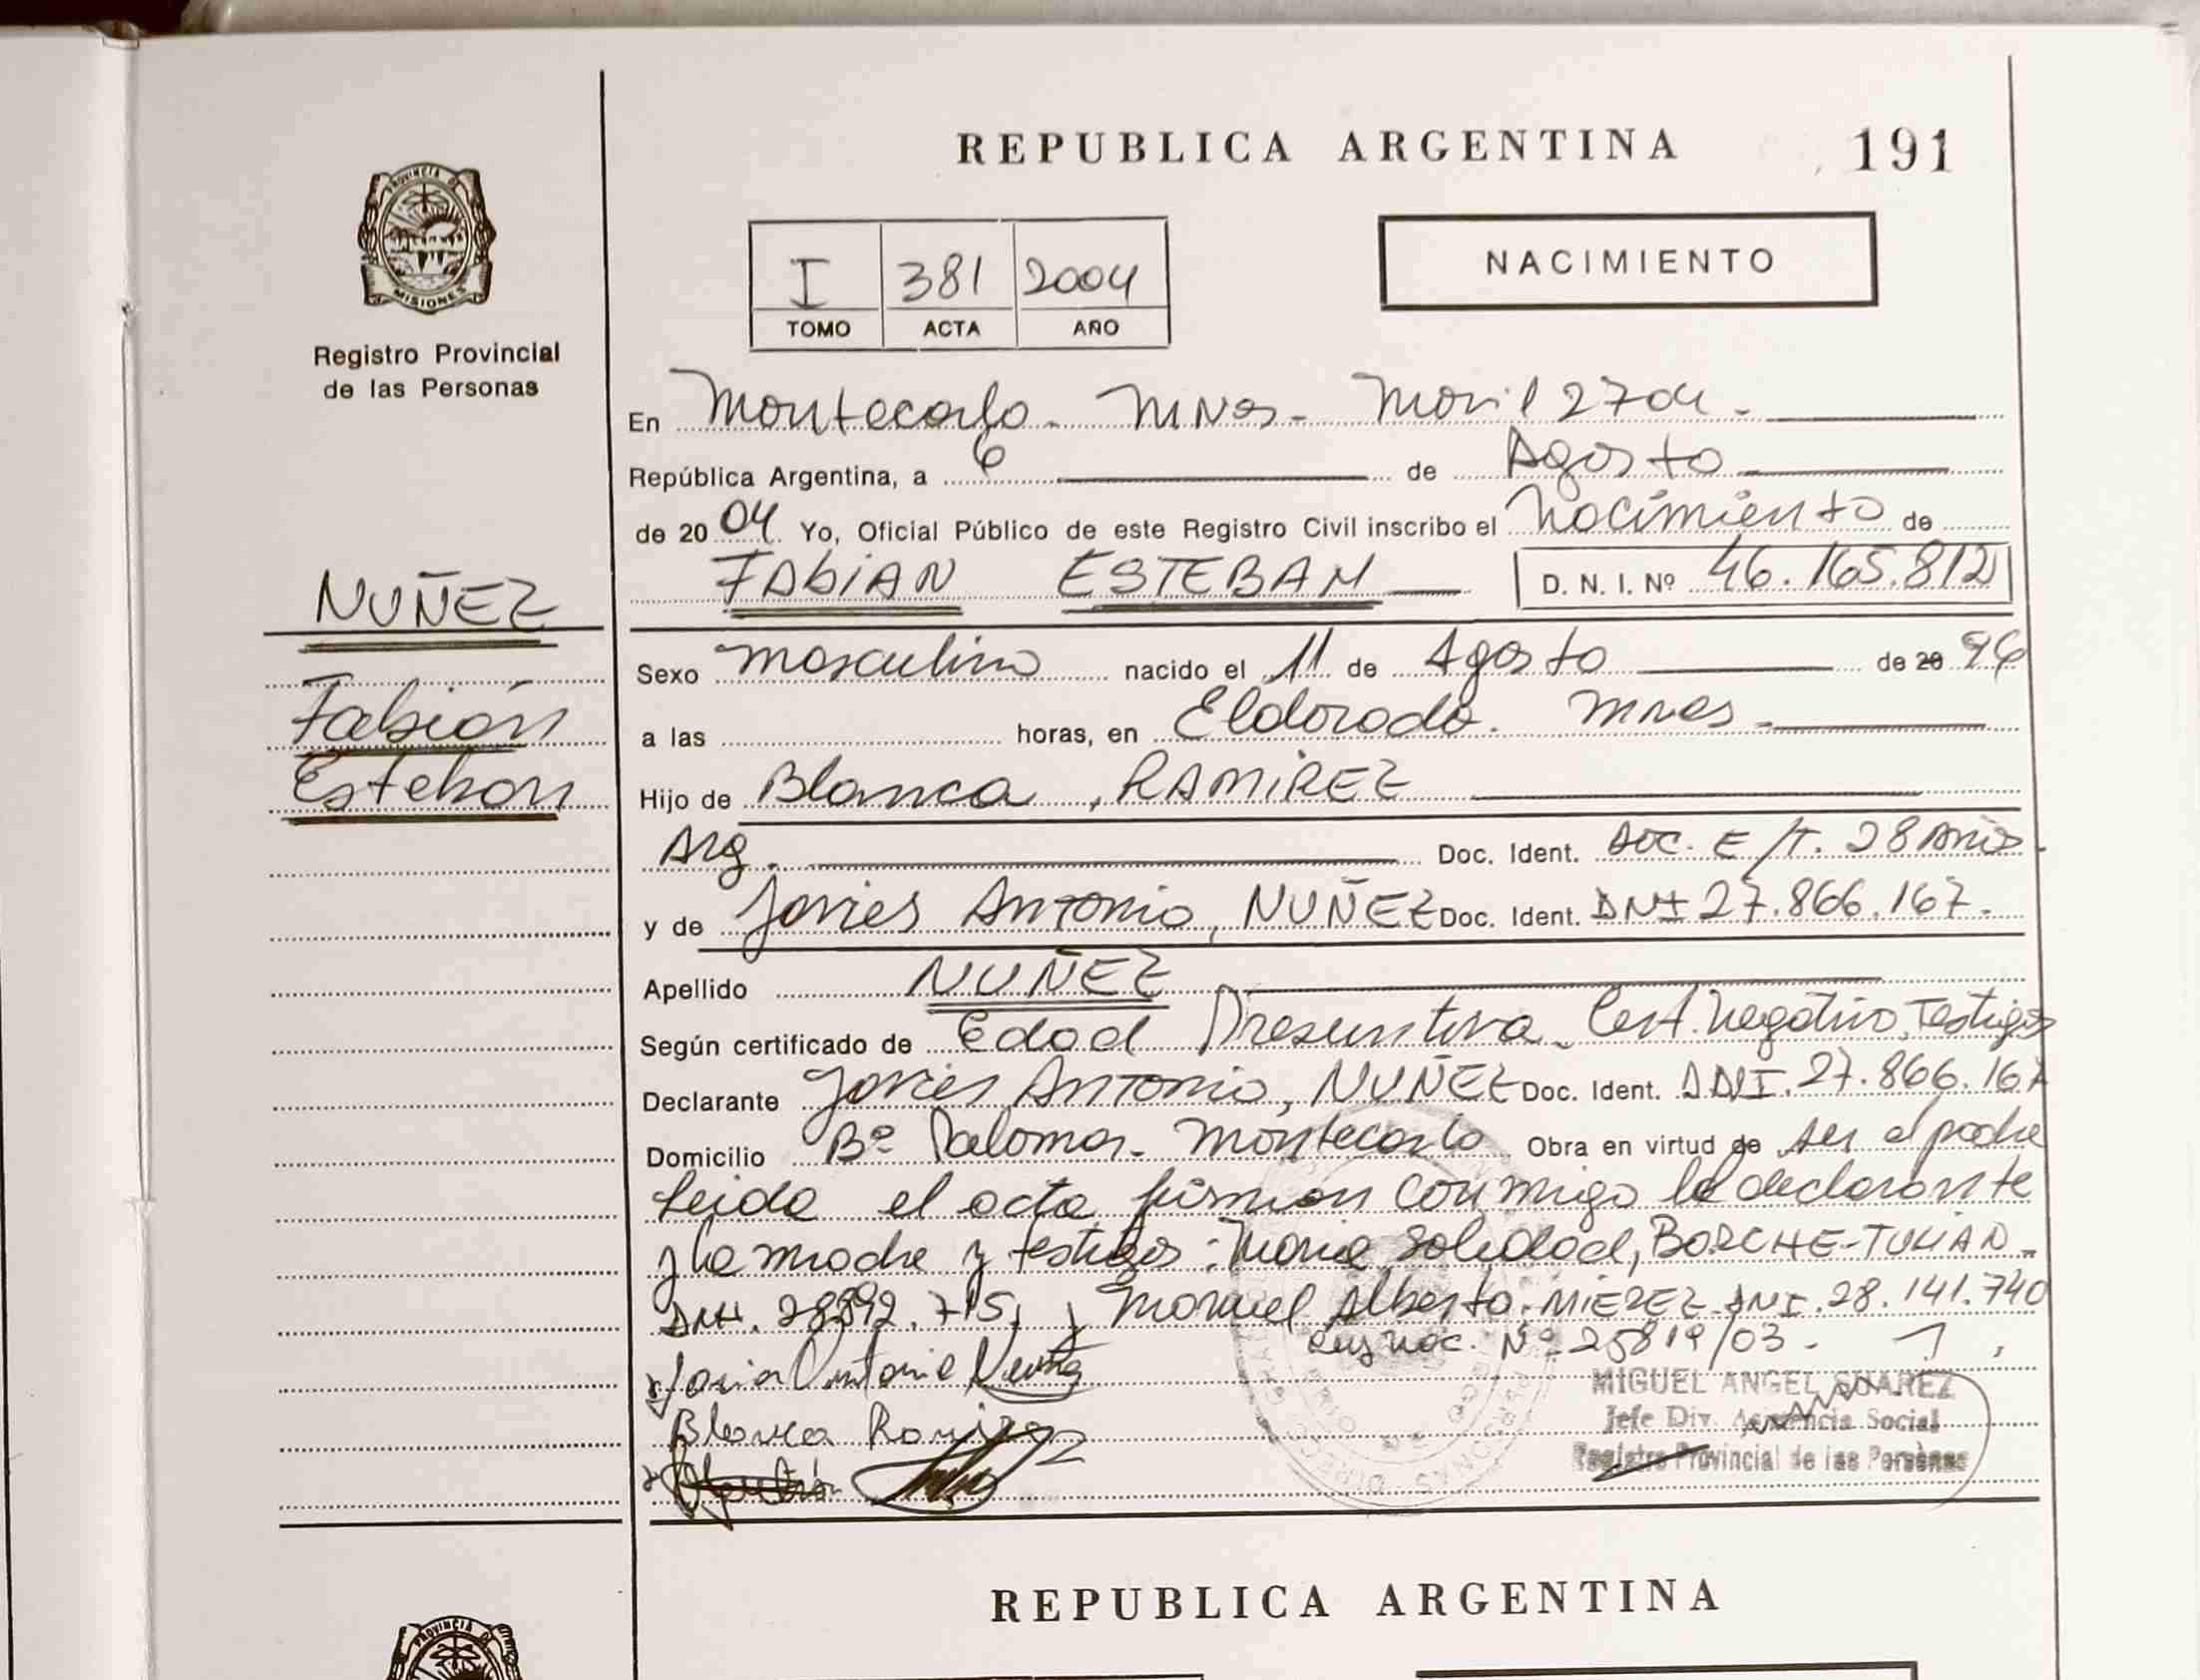 REPUBLICA ARGENTINA 191
PROVINCIA DE
MISIONES
Registro Provincial
de las Personas
I 381 2004
TOMO ACTA AÑO
NACIMIENTO
En Montecarlo - Mnes - Movil 2704.
República Argentina, a 6 de Agosto
de 2004 Yo, Oficial Público de este Registro Civil inscribo el Nacimiento de
FABIAN ESTEBAN D. N. I. Nº 46.165.812
NUÑEZ
Fabián
Esteban
Sexo Masculino nacido el 11 de Agosto de 20 96
a las horas, en Eldorado. Mnes -
Hijo de Blanca, RAMIREZ
Arg. Doc. Ident. Doc. E/T. 28 Años.
y de Javier Antonio, NUÑEZ Doc. Ident. DNI 27.866.167.
Apellido NUÑEZ
Según certificado de Edad Presuntiva - Cert. Negativo, Testigos
Declarante Javier Antonio, NUÑEZ Doc. Ident. DNI. 27.866.167
Domicilio Bº Palomar - Montecarlo Obra en virtud de ser el padre
Leida el acta firman conmigo el declarante
y la madre y testigos: Maria Soledad, BORCHE-TULIAN -
DNI. 28892.715, y Manuel Alberto. MIEREZ DNI. 28.141.740
Nº 25819/03 -
Javier Antonio Nuñez
MIGUEL ANGEL SUAREZ
Jefe Div. Asistencia Social
Registro Provincial de las Personas
Blanca Ramirez
REPUBLICA ARGENTINA
PROVINCIA DE